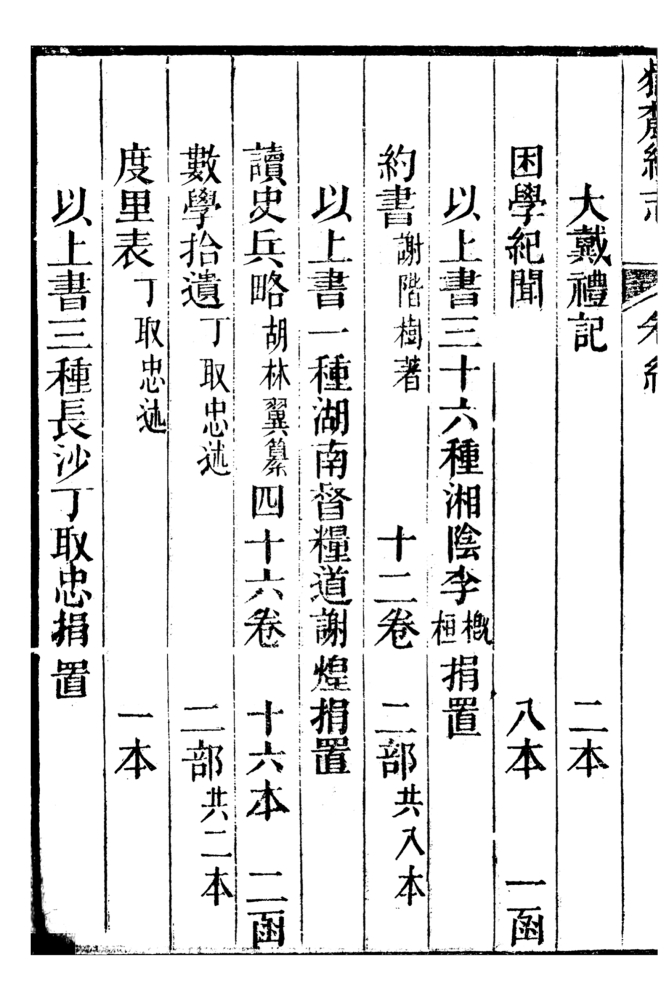 大戴禮記 二本
困學紀聞 八本 一函
以上書三十六種湘陰李概桓捐置
約書謝階樹著 十二卷 二部共八本
以上書一種湖南督糧道謝煌捐置
讀史兵略胡林翼纂 四十六卷 十六本 二函
數學拾遺丁取忠述 二部共二本
度里表丁取忠述 一本
以上書三種長沙丁取忠捐置